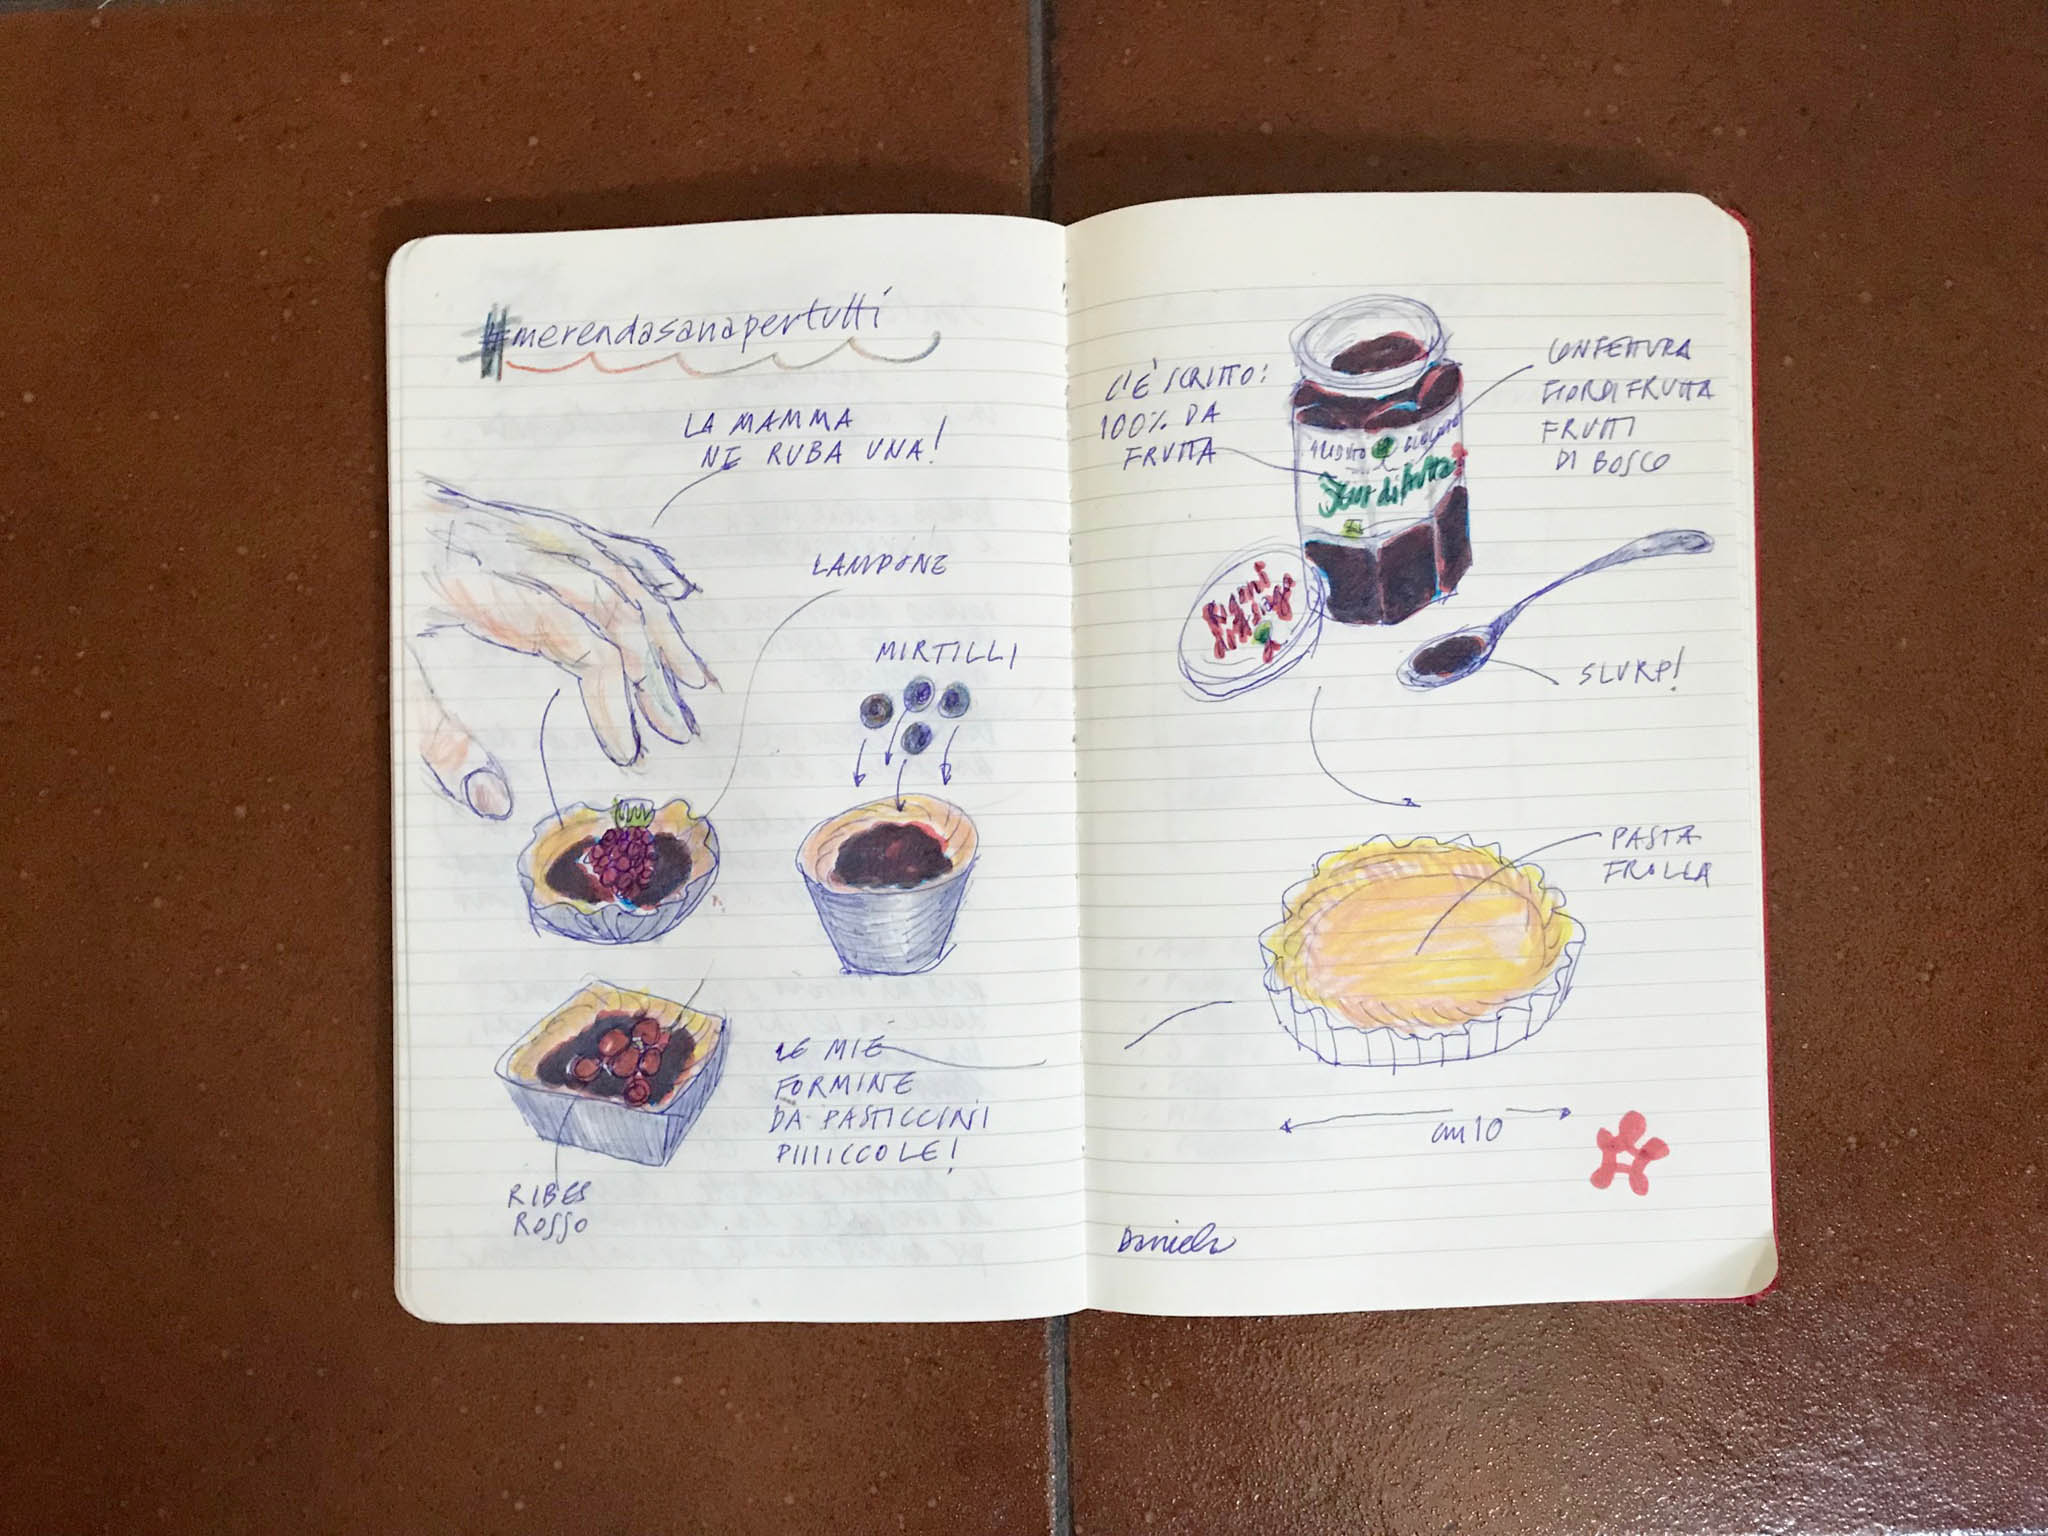 #merendasanapertutti
LA MAMMA
NE RUBA UNA!
LAMPONE
MIRTILLI
LE MIE
FORMINE
DA PASTICCINI
PIIIICCOLE!
RIBES
ROSSO
C'È SCRITTO:
100% DA
FRUTTA
CONFETTURA
FIORDIFRUTTA
FRUTTI
DI BOSCO
Fiordifrutta
Rigoni
di Asiago
SLURP!
PASTA
FROLLA
cm 10
Daniela